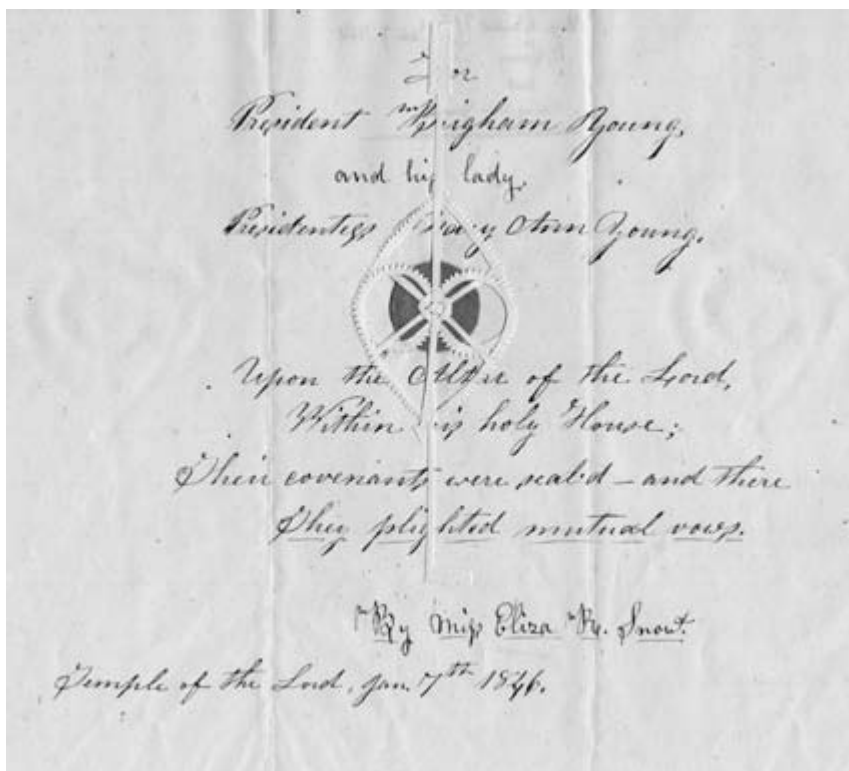 For
President Brigham Young,
and his lady,
Presidentess Mary Ann Young.
Upon the Altar of the Lord,
Within his holy House;
Their covenants were seal'd – and there
They plighted mutual vows.
By Miss Eliza R. Snow.
Temple of the Lord, Jan. 7th 1846.